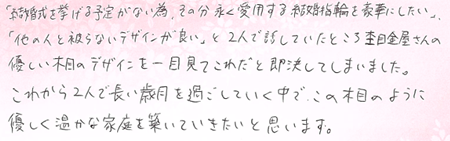 「結婚式を挙げる予定がない為、その分永く愛用する結婚指輪を豪華にしたい」、
「他の人と被らないデザインが良い」と2人で話していたところ杢目金屋さんの
優しい木目のデザインを一目見てこれだと即決してしまいました。
これから2人で長い歳月を過ごしていく中で、この木目のように
優しく温かな家庭を築いていきたいと思います。